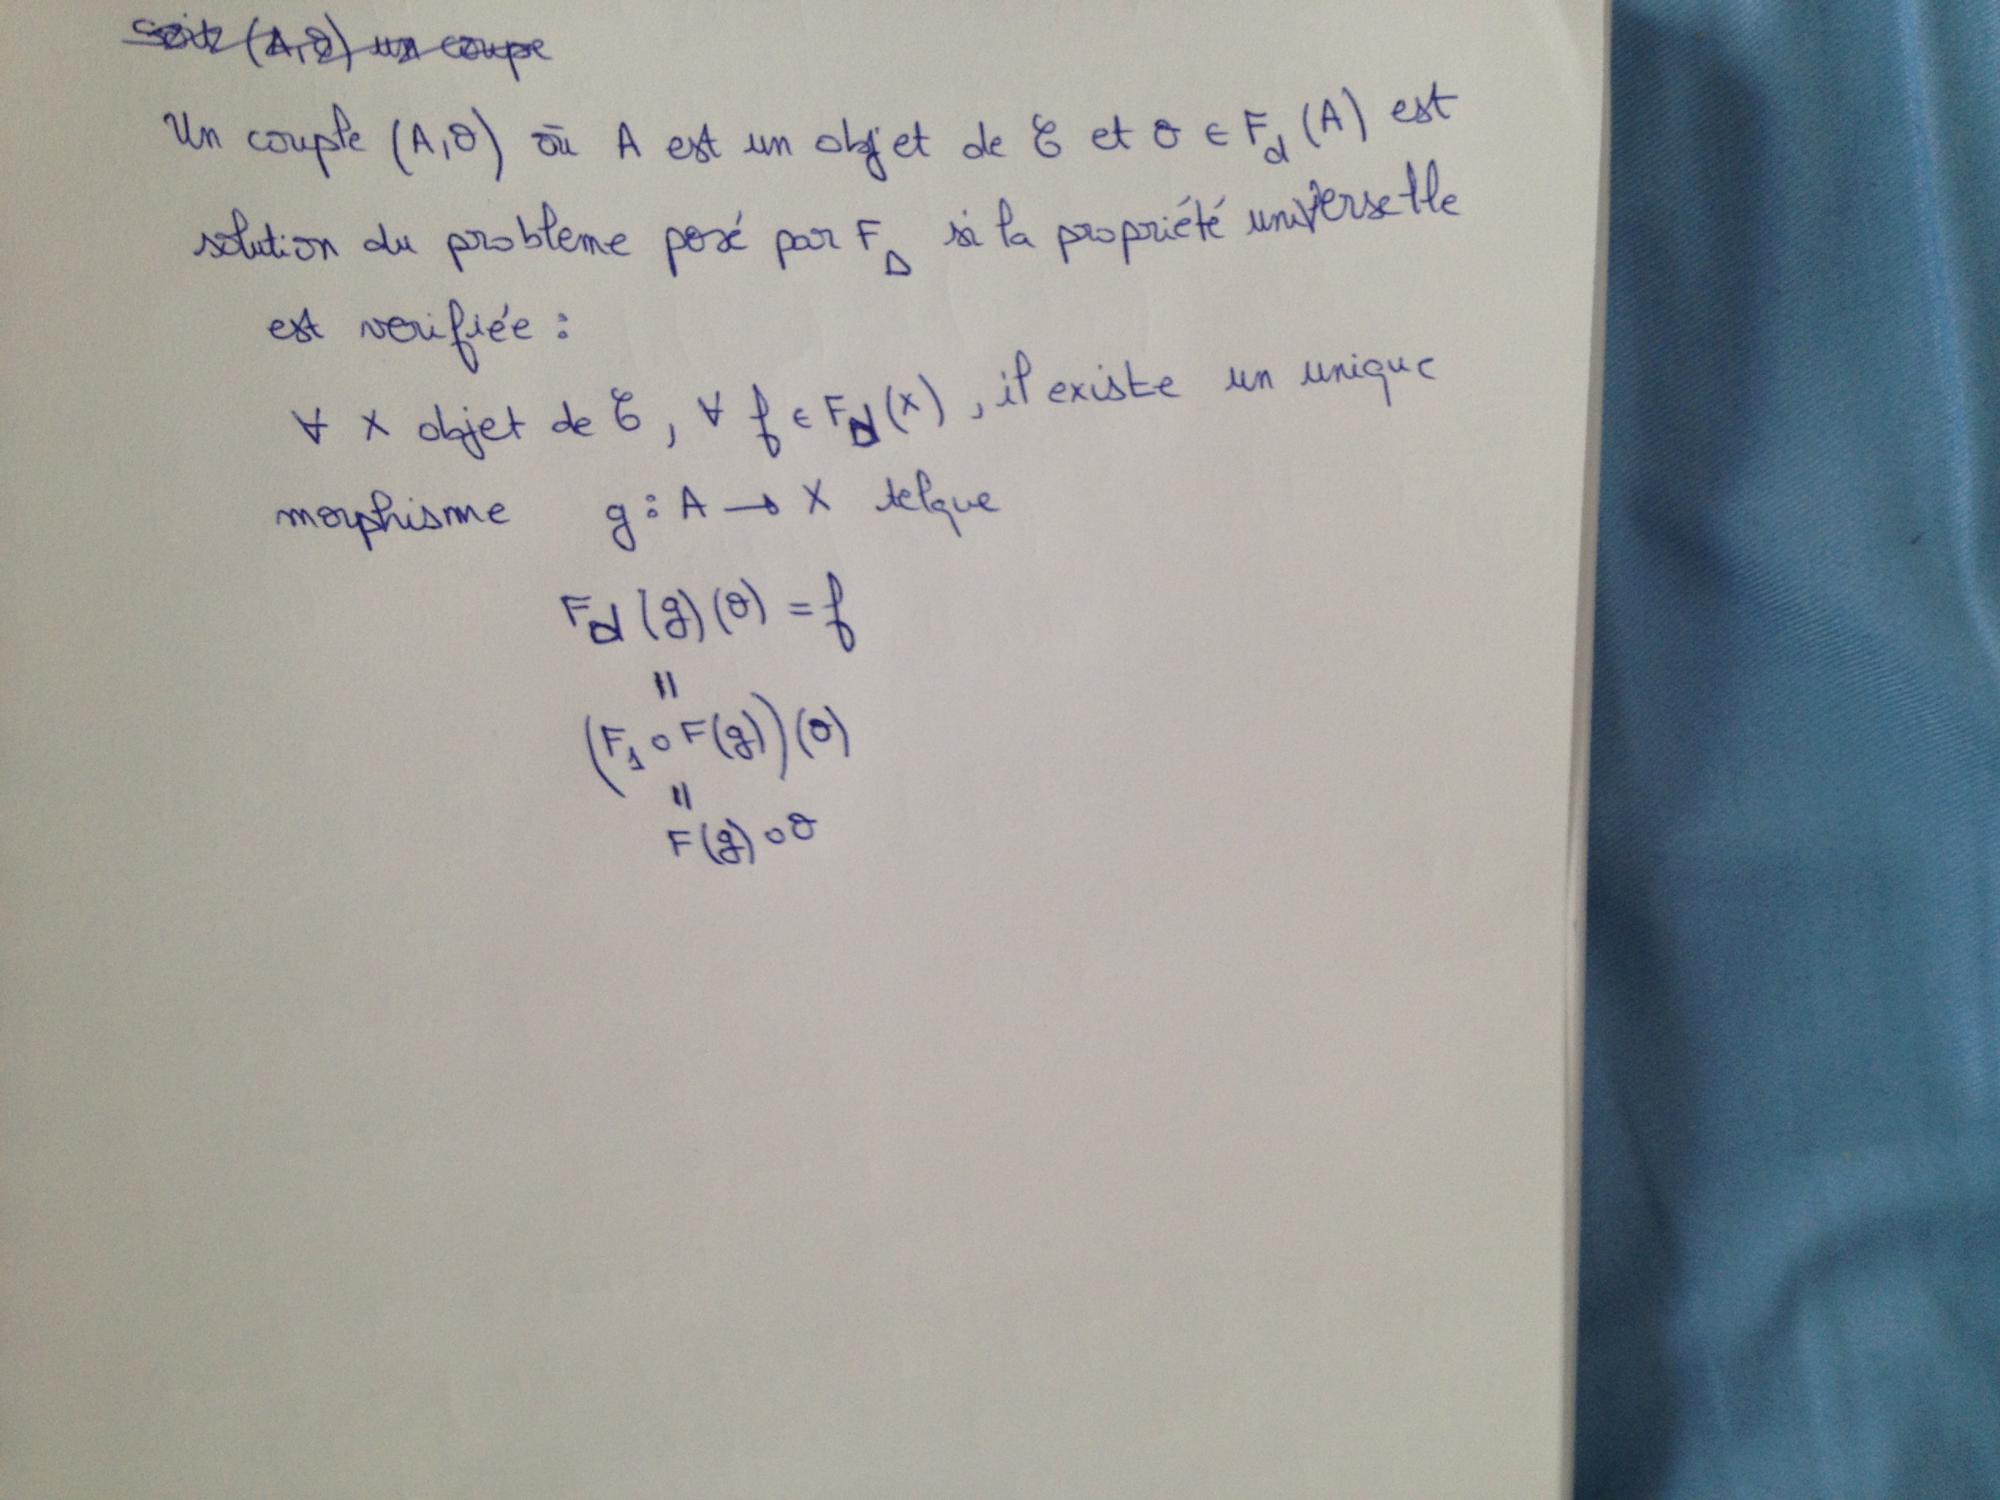 Soit (A,θ) un coupe
Un couple (A,θ) où A est un objet de C et θ ∈ F_d (A) est
solution du probleme posé par F_D si la propriété universelle
est verifiée :
∀ X objet de C, ∀ f ∈ F_d(X), il existe un unique
morphisme g : A → X telque
F_d (g)(θ) = f
=
(F_1 ∘ F(g))(θ)
=
F(g) ∘ θ